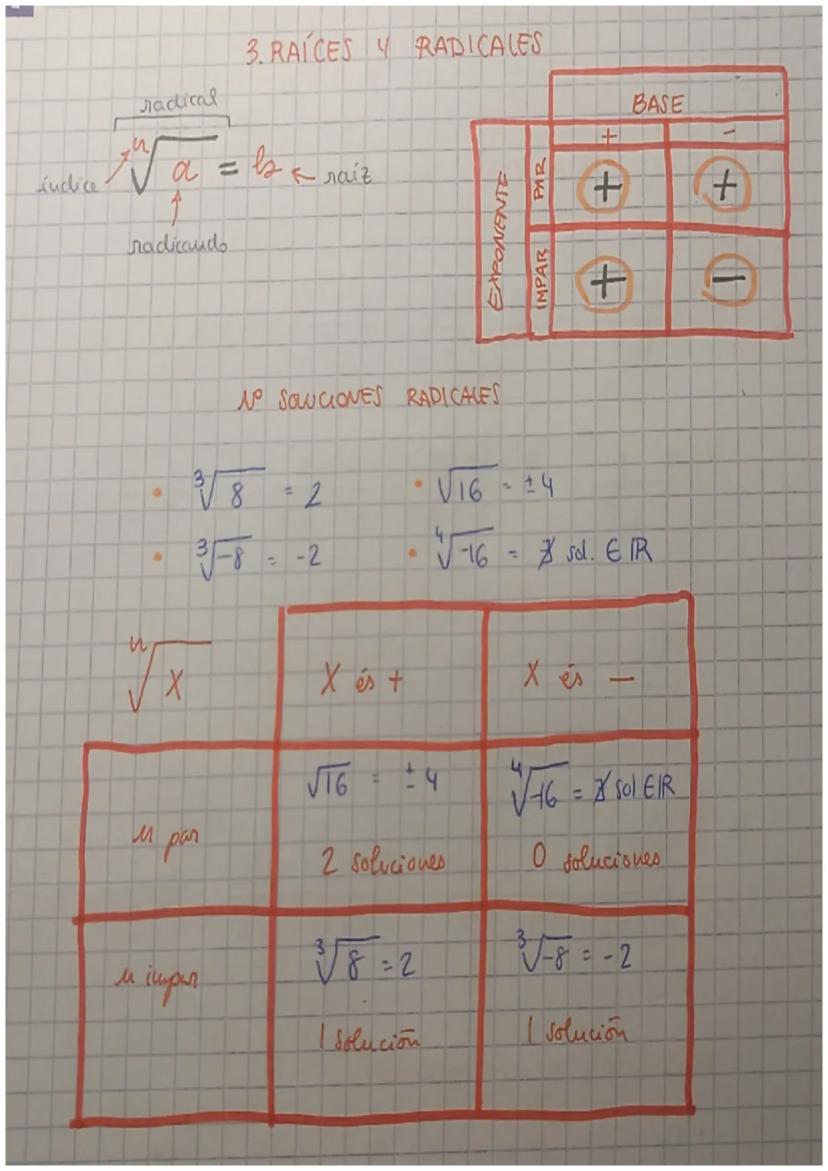 3. RAÍCES Y RADICALES
radical
ⁿ√a = b ← raíz
índice
radicando
BASE
+ -
EXPONENTE
PAR + +
IMPAR + -
Nº SOLUCIONES RADICALES
• ³√8 = 2 • √16 = ±4
• ³√-8 = -2 • ⁴√-16 = ∄ sol. ∈ IR
ⁿ√X X és + X és -
n par
√16 = ±4 ⁴√-16 = ∄ sol ∈ IR
2 soluciones 0 soluciones
n impar
³√8 = 2 ³√-8 = -2
1 solución 1 solución